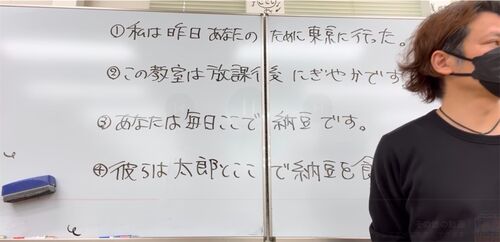 ①私は昨日あなたのために東京に行った。
②この教室は放課後にぎやかです
③あなたは毎日ここで納豆です。
④彼らは太郎とここで納豆を食